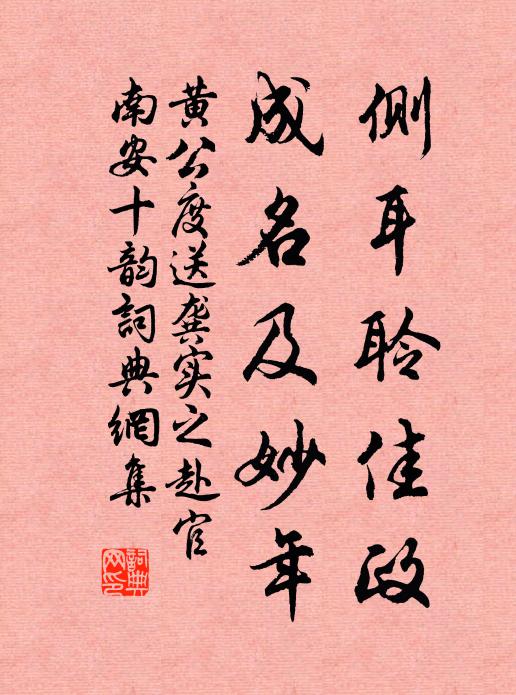 側耳聆佳政
成名及妙年
黄公度送龚实之赴官
南安十韵詞典網集
詞典网印